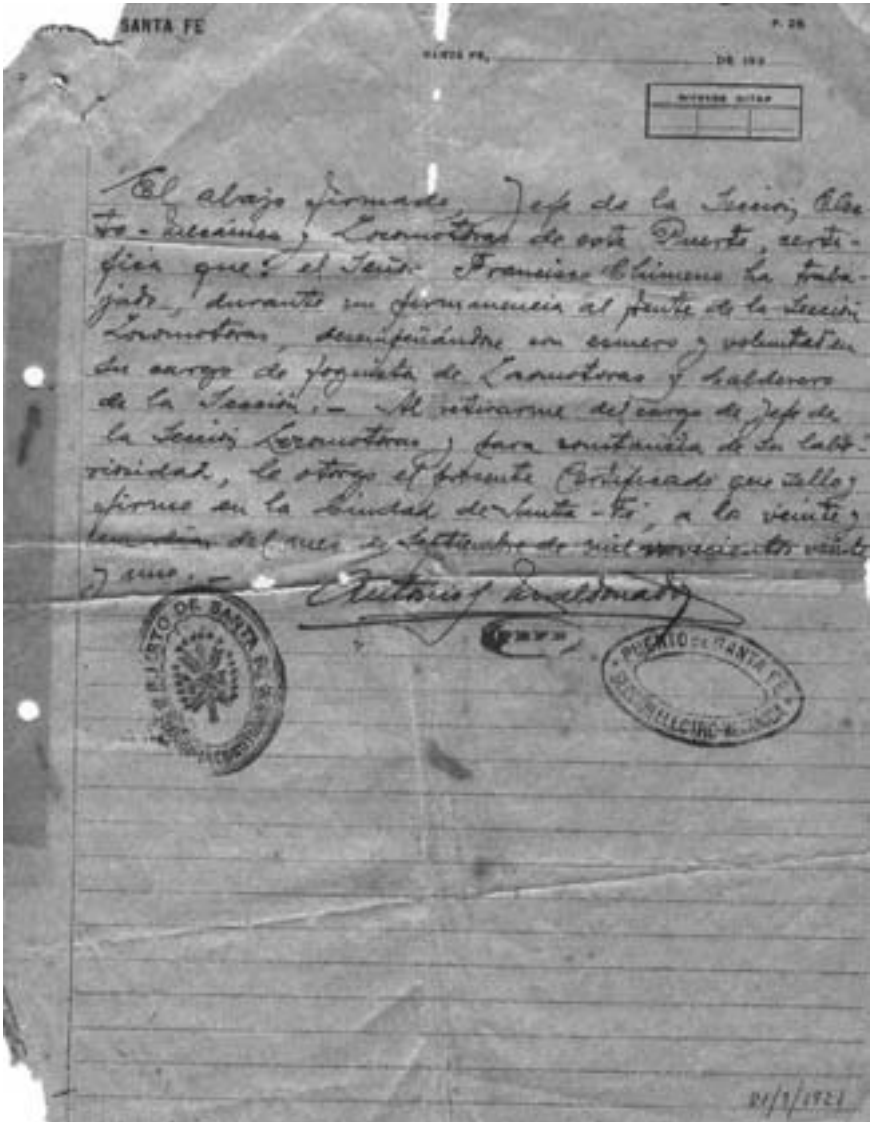 SANTA FE
P. 28
SANTA FE, DE 192
El abajo firmado, Jefe de la Sección Elec-
tro-mecánica y Locomotoras de este Puerto, certi-
fica que: el Señor Francisco Chimeno ha traba-
jado, durante mi permanencia al frente de la Sección
Locomotoras, desempeñándose con esmero y voluntad en
su cargo de foguista de Locomotoras y Calderero
de la Sección.- Al retirarme del cargo de Jefe de
la Sección Locomotoras y para constancia de su labo-
riosidad, le otorgo el presente Certificado que sello y
firmo en la Ciudad de Santa-Fé, a los veinte y
un días del mes de Septiembre de mil novecientos veinte
y uno.-
Antonio Maldonado
JEFE
PUERTO DE SANTA FE
PUERTO DE SANTA FE
SECCION ELECTRO-MECANICA
21/9/1921